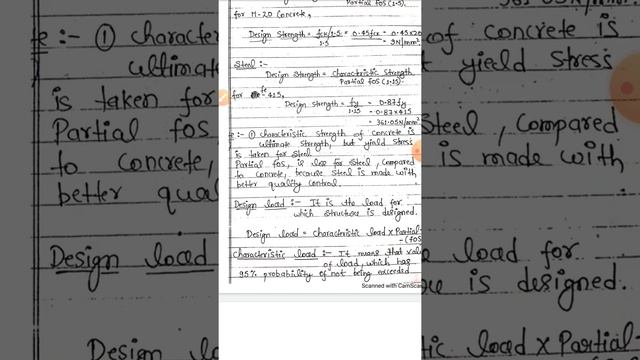 Partial FOS (1.5)
for M-20 Concrete,
Design Strength = fck/1.5 = 0.45fck = 0.45×20
1.5 = 9N/mm²
Steel :-
Design Strength = Characteristic Strength
Partial FOS (1.15)
for fe 415,
Design Strength = fy = 0.87fy
1.15 = 0.87×415
= 361.05N/mm²
:- ① Characteristic Strength of Concrete is
Ultimate Strength, but yield Stress
is taken for Steel
Partial FOS, is less for Steel, Compared
to Concrete, because Steel is made with
better quality Control.
Design load :- It is the load for
which structure is designed.
Design load = Characteristic load × Partial
(FOS
Characteristic load :- It means that value
of load, which has
95% probability of not being exceeded
Scanned with CamScan
:- ① Character
Ultimate
is taken for
Partial FOS
to Concrete,
better qual
Design load
Design lo
361.05N/mm
of concrete is
yield Stress
Steel, Compared
is made with
load for
is designed.
tic load × Partial-